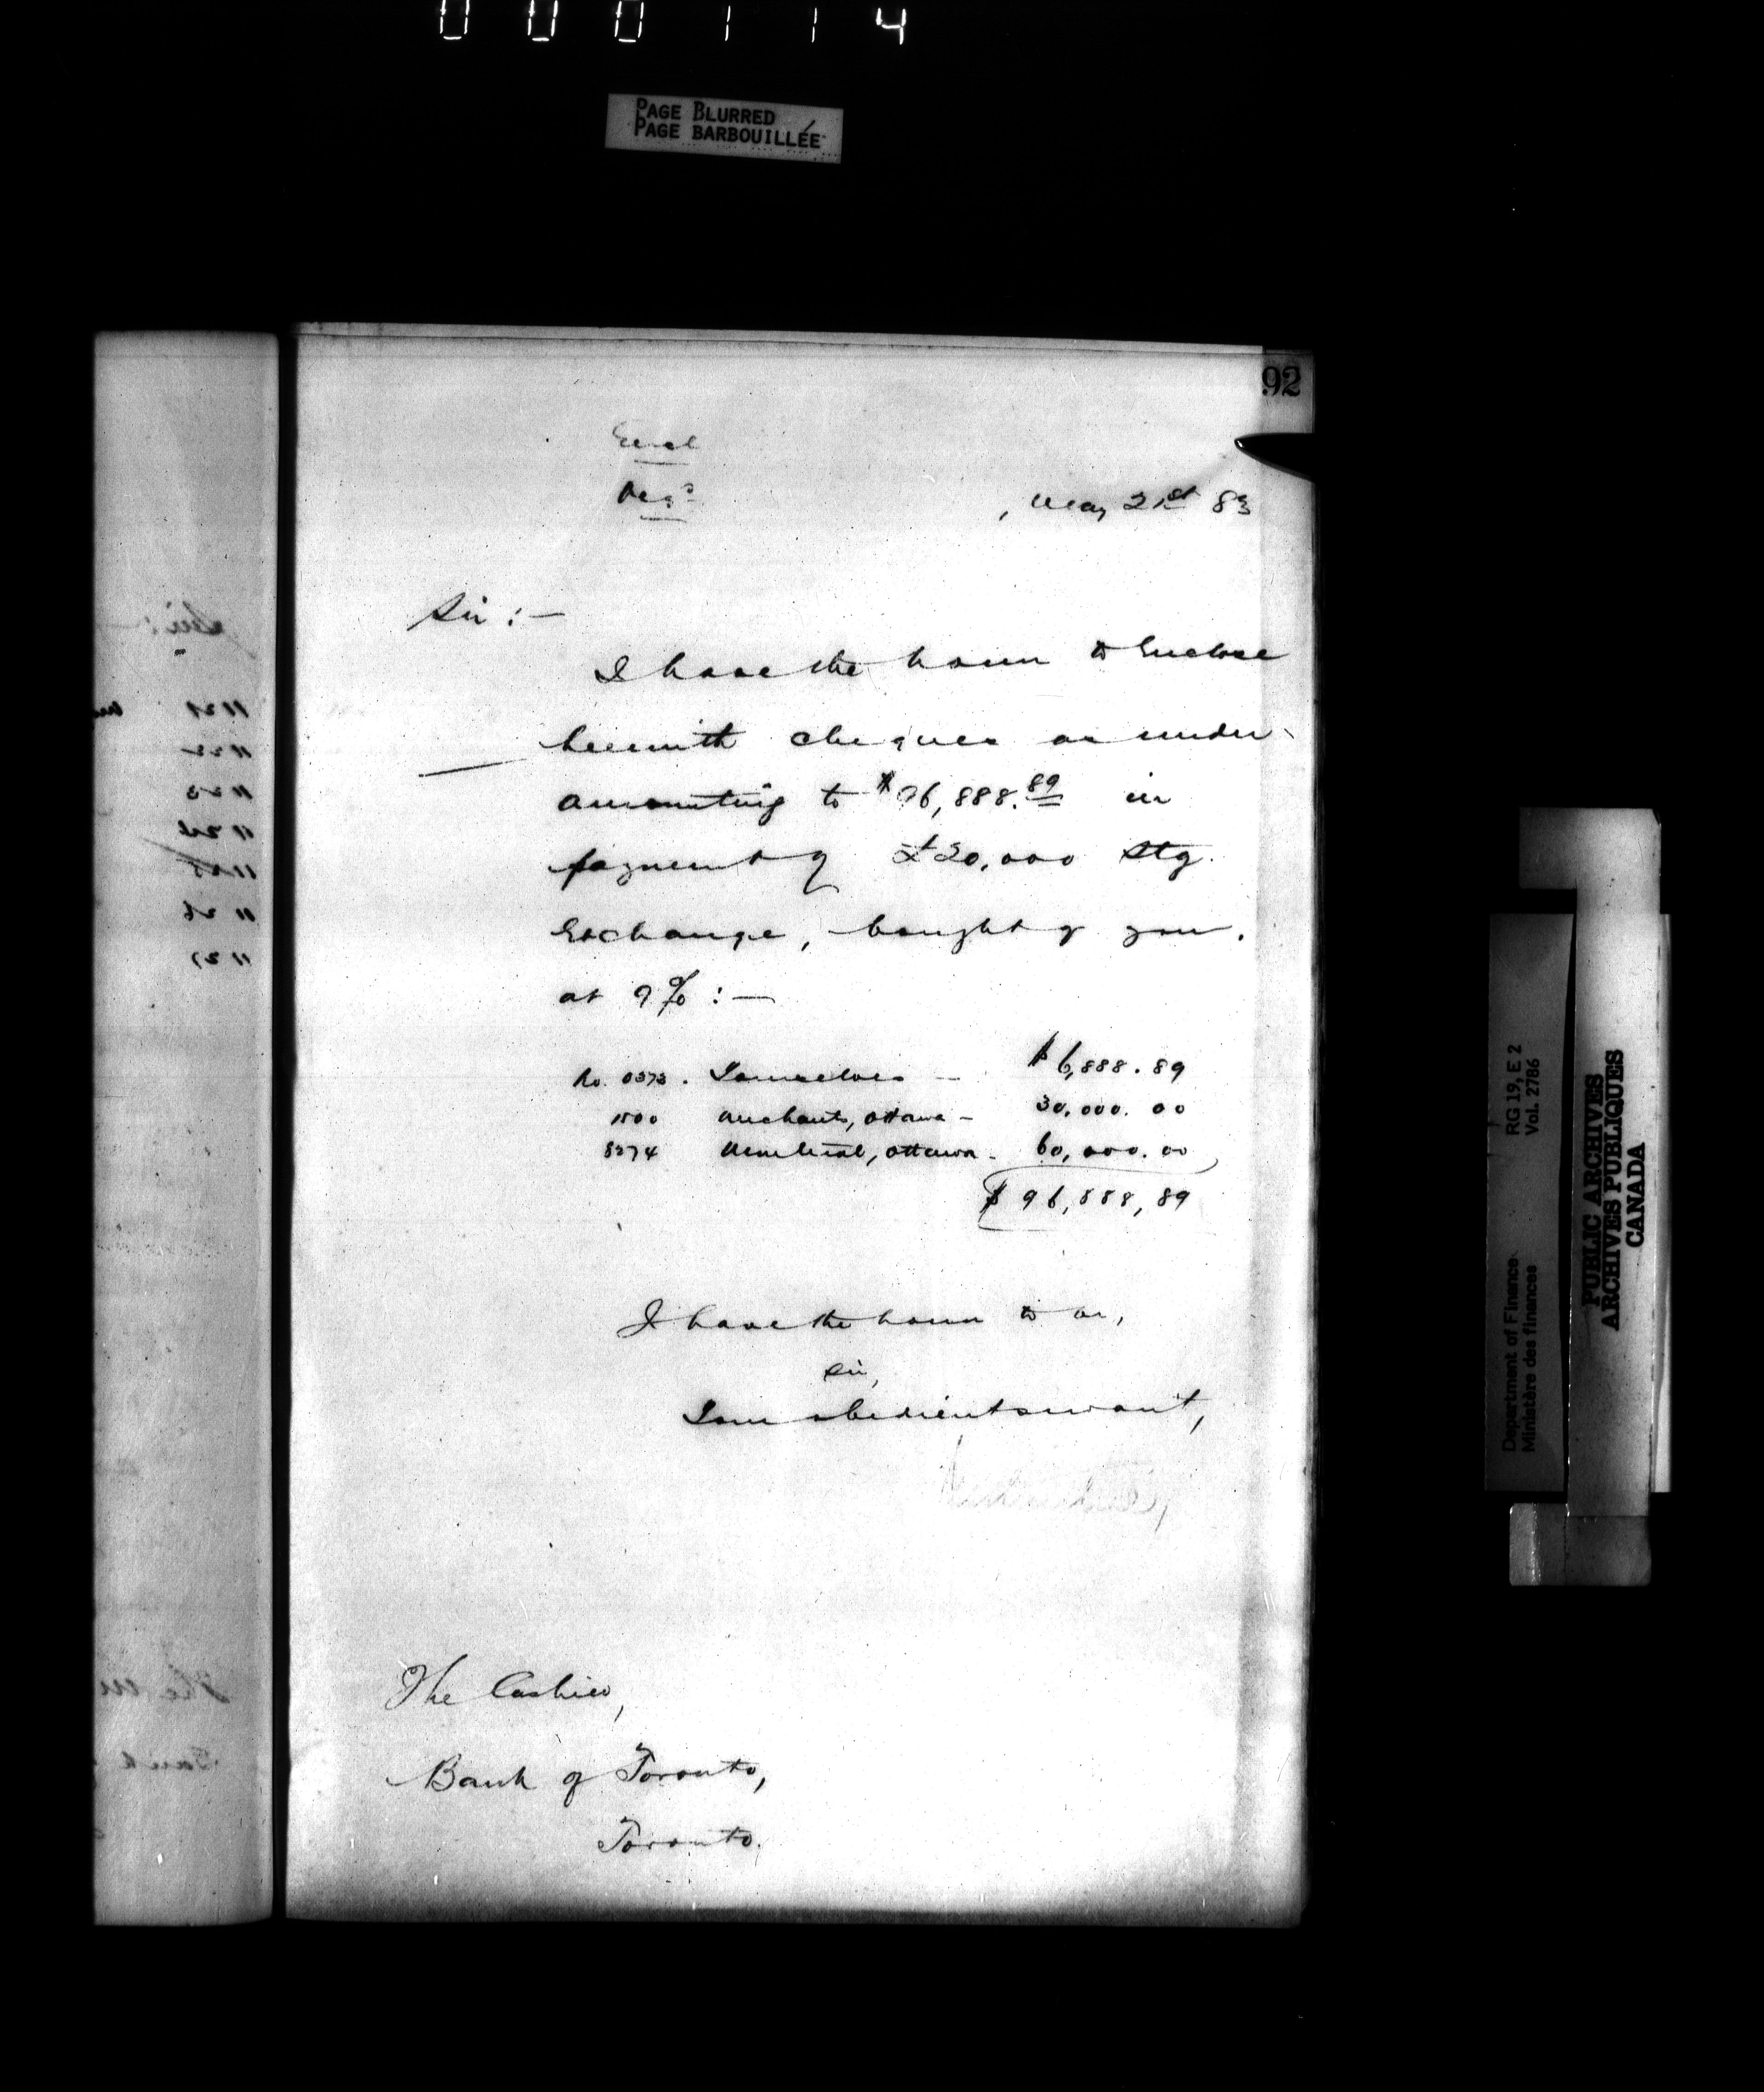 000114
PAGE BLURRED
PAGE BARBOUILLÉE
92
Encl
Reg^d
, May 21st 83
Sir :—
I have the honor to Enclose
herewith cheques as under
amounting to $96,888.89 in
payment of £20,000 Stg.
Exchange, bought of you.
at 9% :—
No. 0373. Yourselves — $6,888.89
1500 Merchants, Ottawa — 30,000.00
8274 Montreal, Ottawa — 60,000.00
$96,888,89
I have the honor to be,
Sir,
Your obedient servant,
The Cashier,
Bank of Toronto,
Toronto.
Department of Finance RG 19, E 2
Ministère des finances Vol. 2786
PUBLIC ARCHIVES
ARCHIVES PUBLIQUES
CANADA